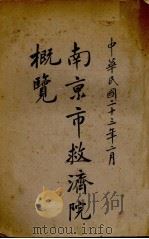 中華民國二十三年一月
南京市救濟院
概覽